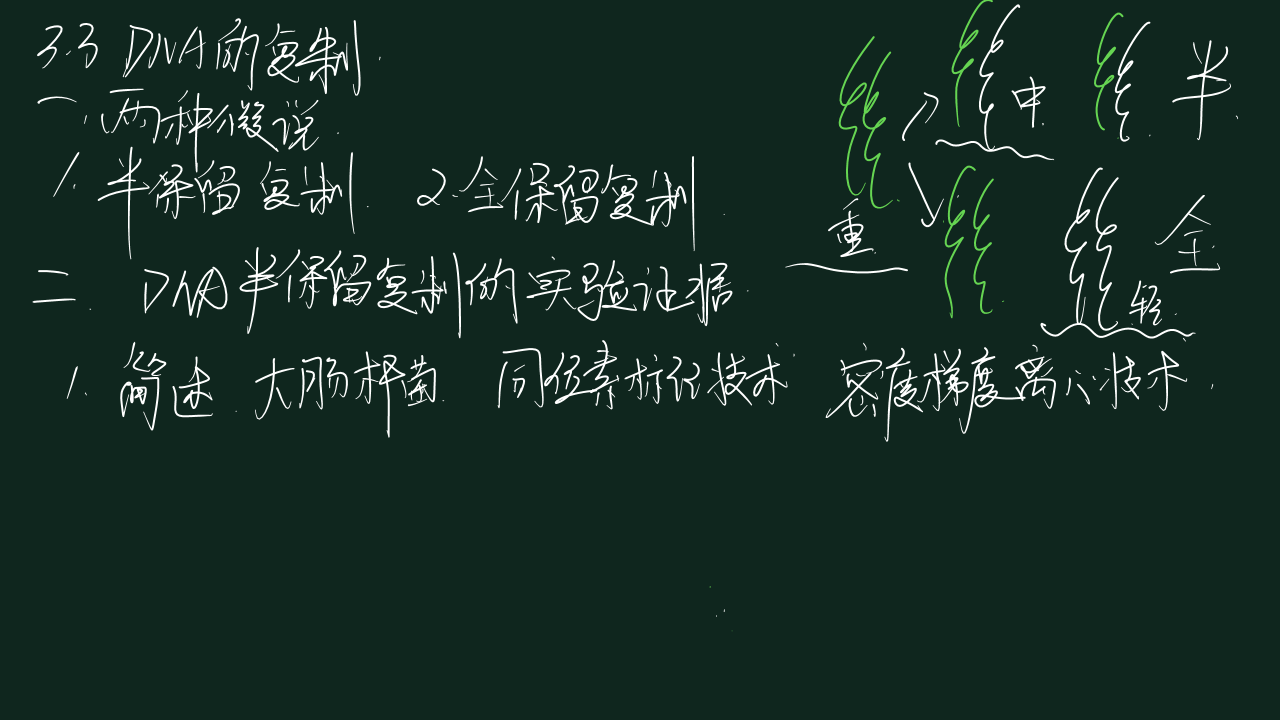 3.3 DNA的复制
一、两种假说
1. 半保留复制 2. 全保留复制
二 DNA半保留复制的实验证据
1. 简述 大肠杆菌 同位素标记技术 密度梯度离心技术
中 半
重 全
轻